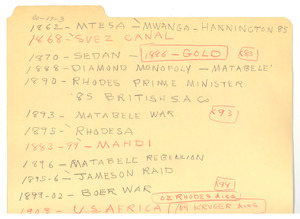 1862 - MTESA - MWANGA - HANNINGTON 85
1868 - SUEZ CANAL
1870 - SEDAN - 1886 - GOLD K85
1888 - DIAMOND MONOPOLY - MATABELE
1890 - RHODES PRIME MINISTER
'85 BRITISH S.A. CO
1893 - MATABELE WAR K93
1895 - RHODESA
1883-99 - MAHDI
1896 - MATABELE REBELLION
1895-6 - JAMESON RAID
1899-02 - BOER WAR K98
02 RHODES DIES
U.S. AFRICA 04 KRUGER DIES